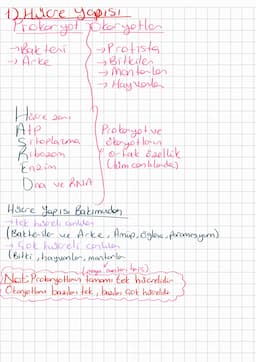 1) Hücre Yapısı
Prokaryot Ökaryotlar
→ Bakteri → Protista
→ Arke → Bitkiler
→ Mantarlar
→ Hayvanlar
Hücre zarı
Atp
Sitoplazma
Ribozom
Enzim
Dna ve RNA
Prokaryot ve
ökaryotların
ortak özellik
(tüm canlılarda)
Hücre Yapısı Bakımından
→ tek hücreli canlılar
(Bakteriler ve Arke, Amip, öglena, paramesyum)
→ Çok hücreli canlılar
(Bitki, hayvanlar, mantarlar
(maya mantarı hariç)
Not: Prokaryotların tamamı tek hücrelidir
Ökaryotların bazıları tek, bazıları çok hücrelidir